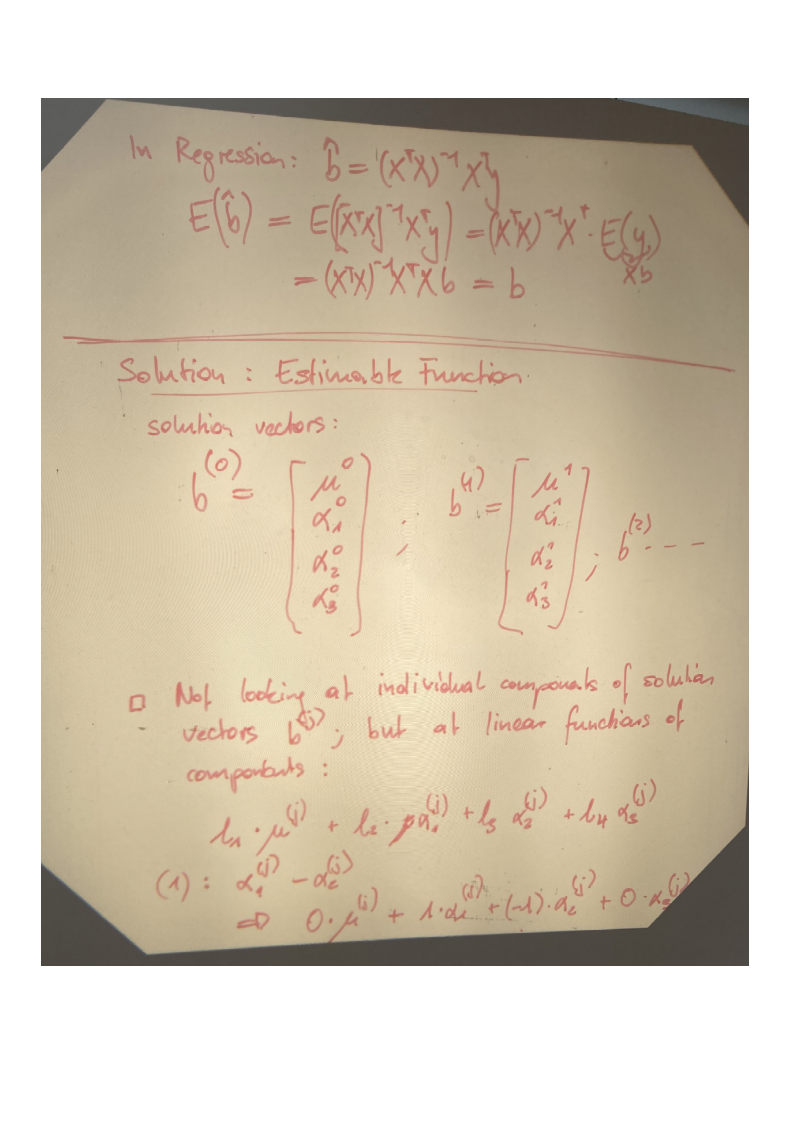 In Regression: b̂ = (XᵀX)⁻¹ Xᵀy
E(b̂) = E([XᵀX]⁻¹Xᵀy) = (XᵀX)⁻¹Xᵀ · E(y)
Xb
= (XᵀX)⁻¹XᵀXb = b
Solution : Estimable Function
solution vectors :
b⁽⁰⁾ = [μ⁰ α₁⁰ α₂⁰ α₃⁰] ; b⁽¹⁾ = [μ¹ α₁¹ α₂¹ α₃¹] ; b⁽²⁾ - - -
□ Not looking at individual components of solution
vectors b⁽ʲ⁾ ; but at linear functions of
components :
l₁ · μ⁽ʲ⁾ + l₂ · α₁⁽ʲ⁾ + l₃ α₂⁽ʲ⁾ + l₄ α₃⁽ʲ⁾
(1) : α₁⁽ʲ⁾ − α₂⁽ʲ⁾
⇒ 0 · μ⁽ʲ⁾ + 1 · α₁⁽ʲ⁾ + (−1) · α₂⁽ʲ⁾ + 0 · α₃⁽ʲ⁾